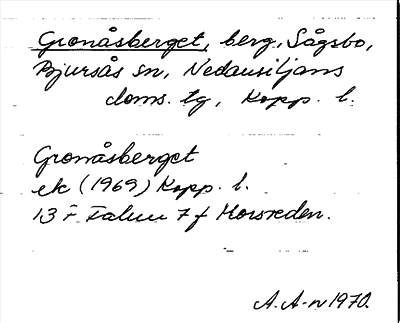 Gronåsberget, berg, Sågsbo,
Bjursås sn, Nedansiljans
doms. lg, Kopp. l.
Gronåsberget
ek (1969) Kopp. l.
13 F Falun 7 f Morsreden.
A. A-n 1970.